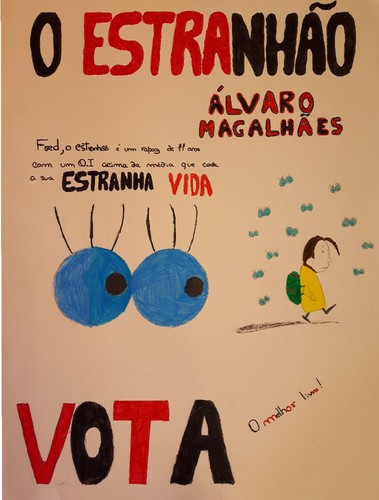 O ESTRANHÃO
ÁLVARO
MAGALHÃES
Fred, o estranhão é um rapaz de 11 anos
com um Q.I acima da média que conta
a sua ESTRANHA VIDA
VOTA
O melhor livro!